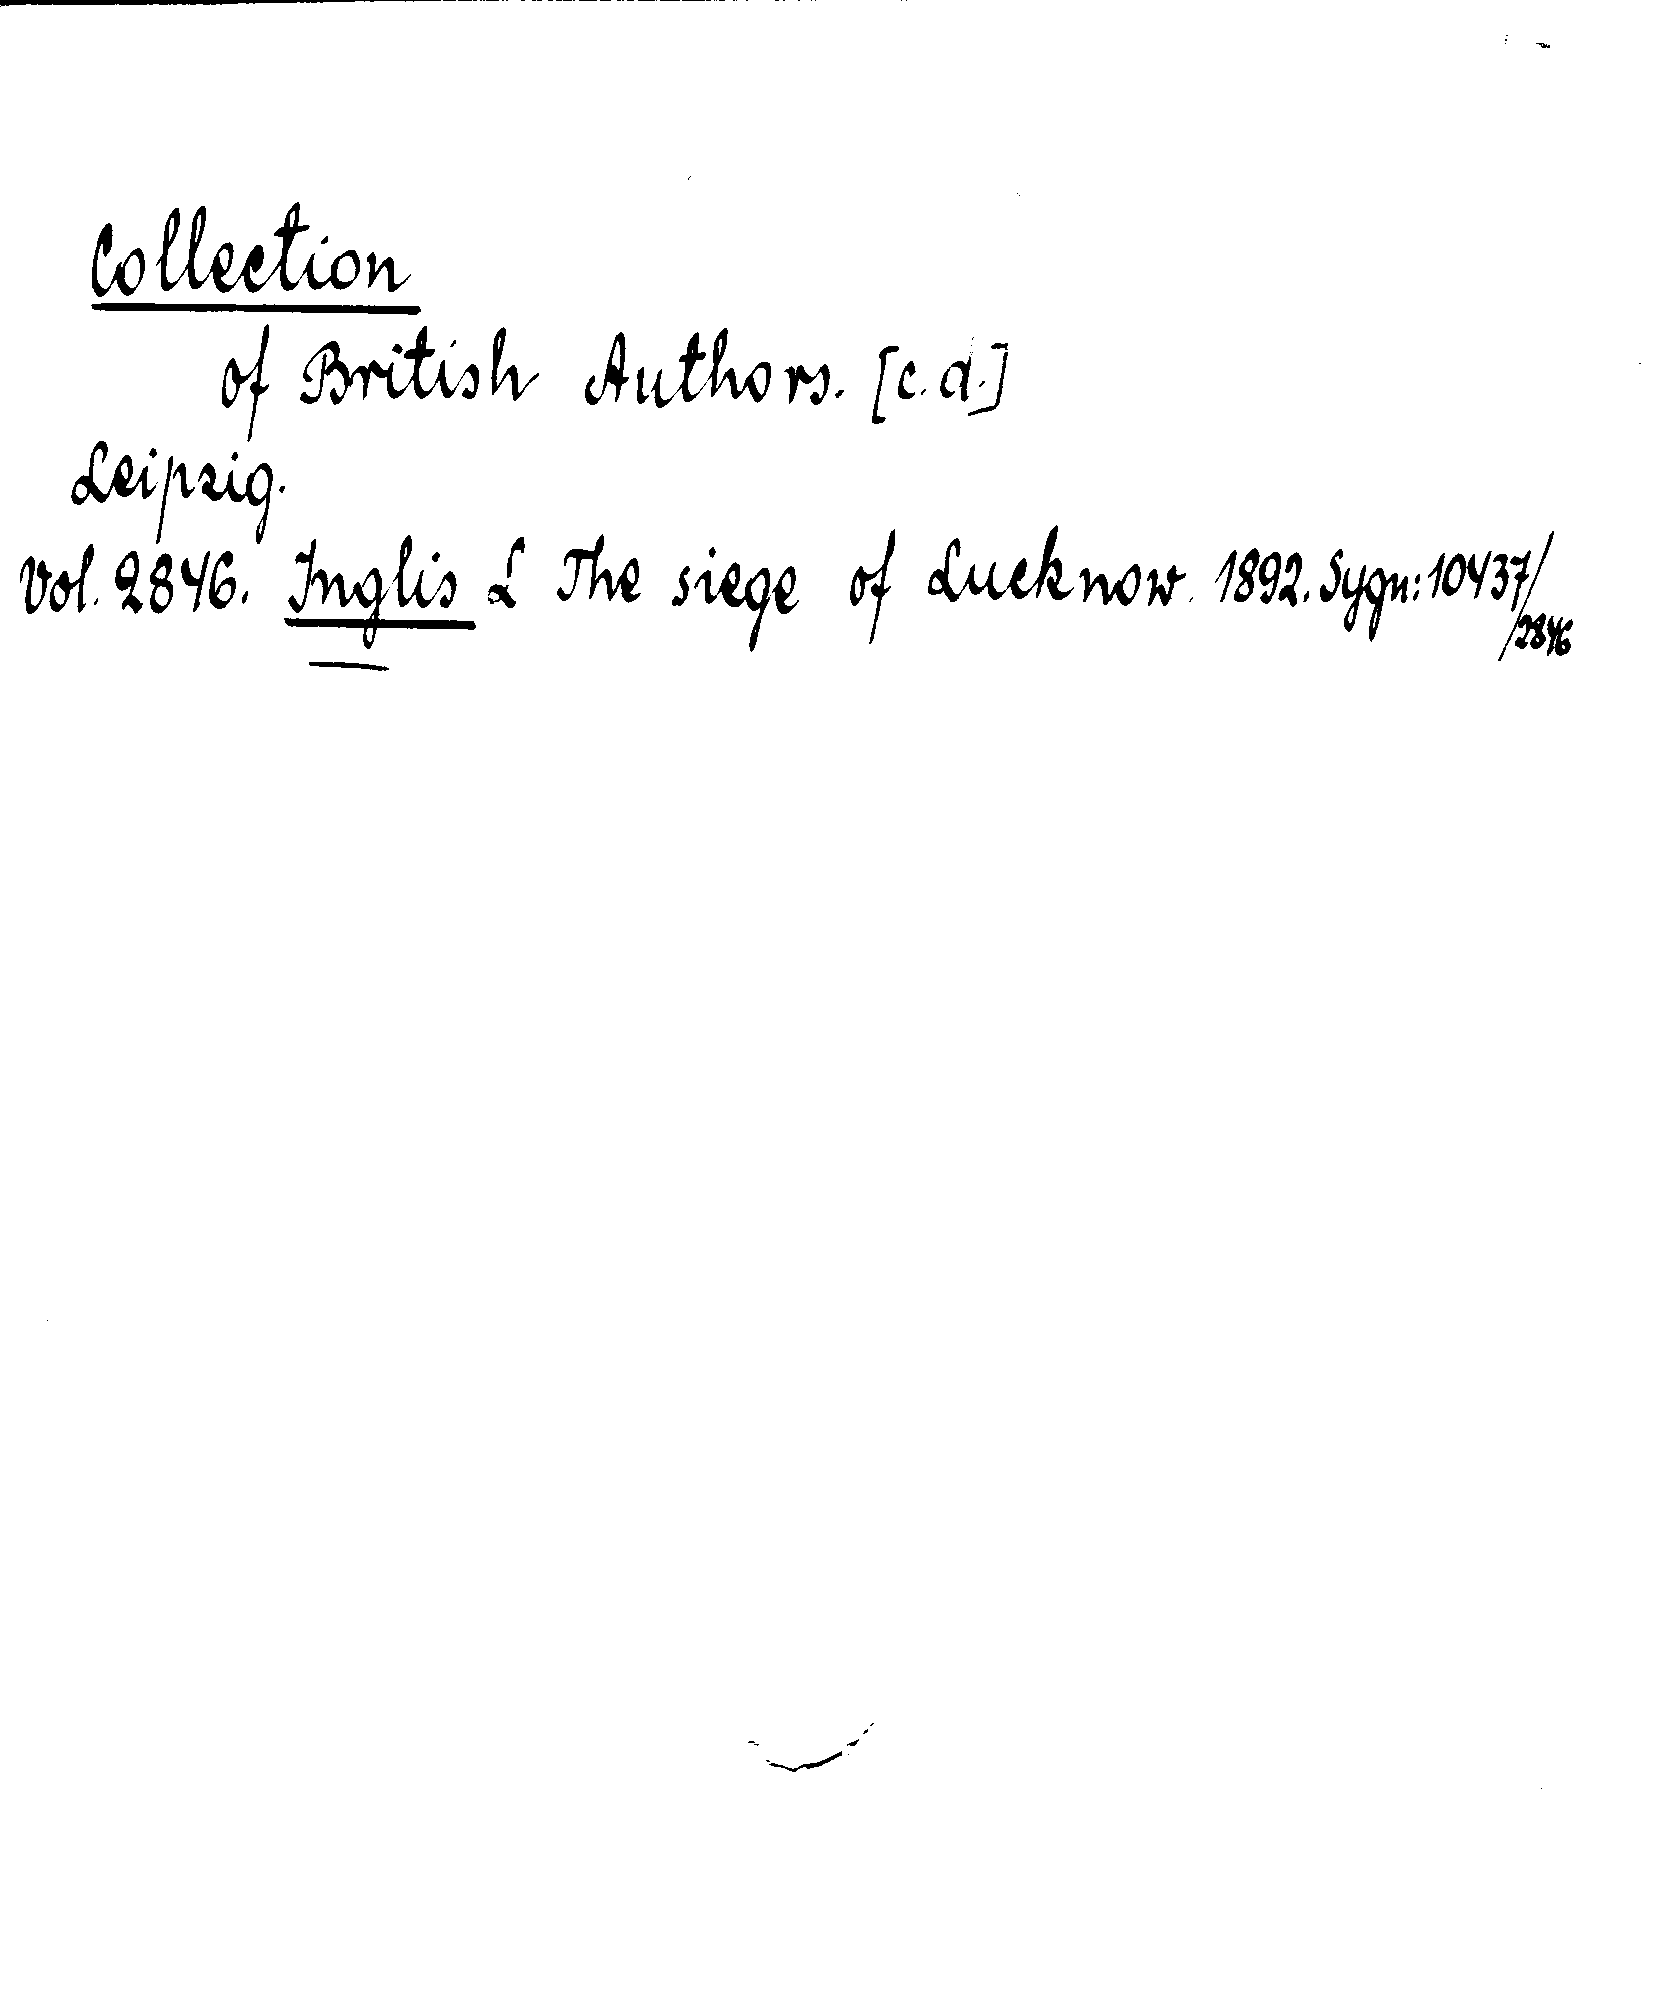 Collection
of British Authors. [c.d.]
Leipzig.
Vol. 2846. Inglis L The siege of Lucknow. 1892. Sygn: 10437/
/2846